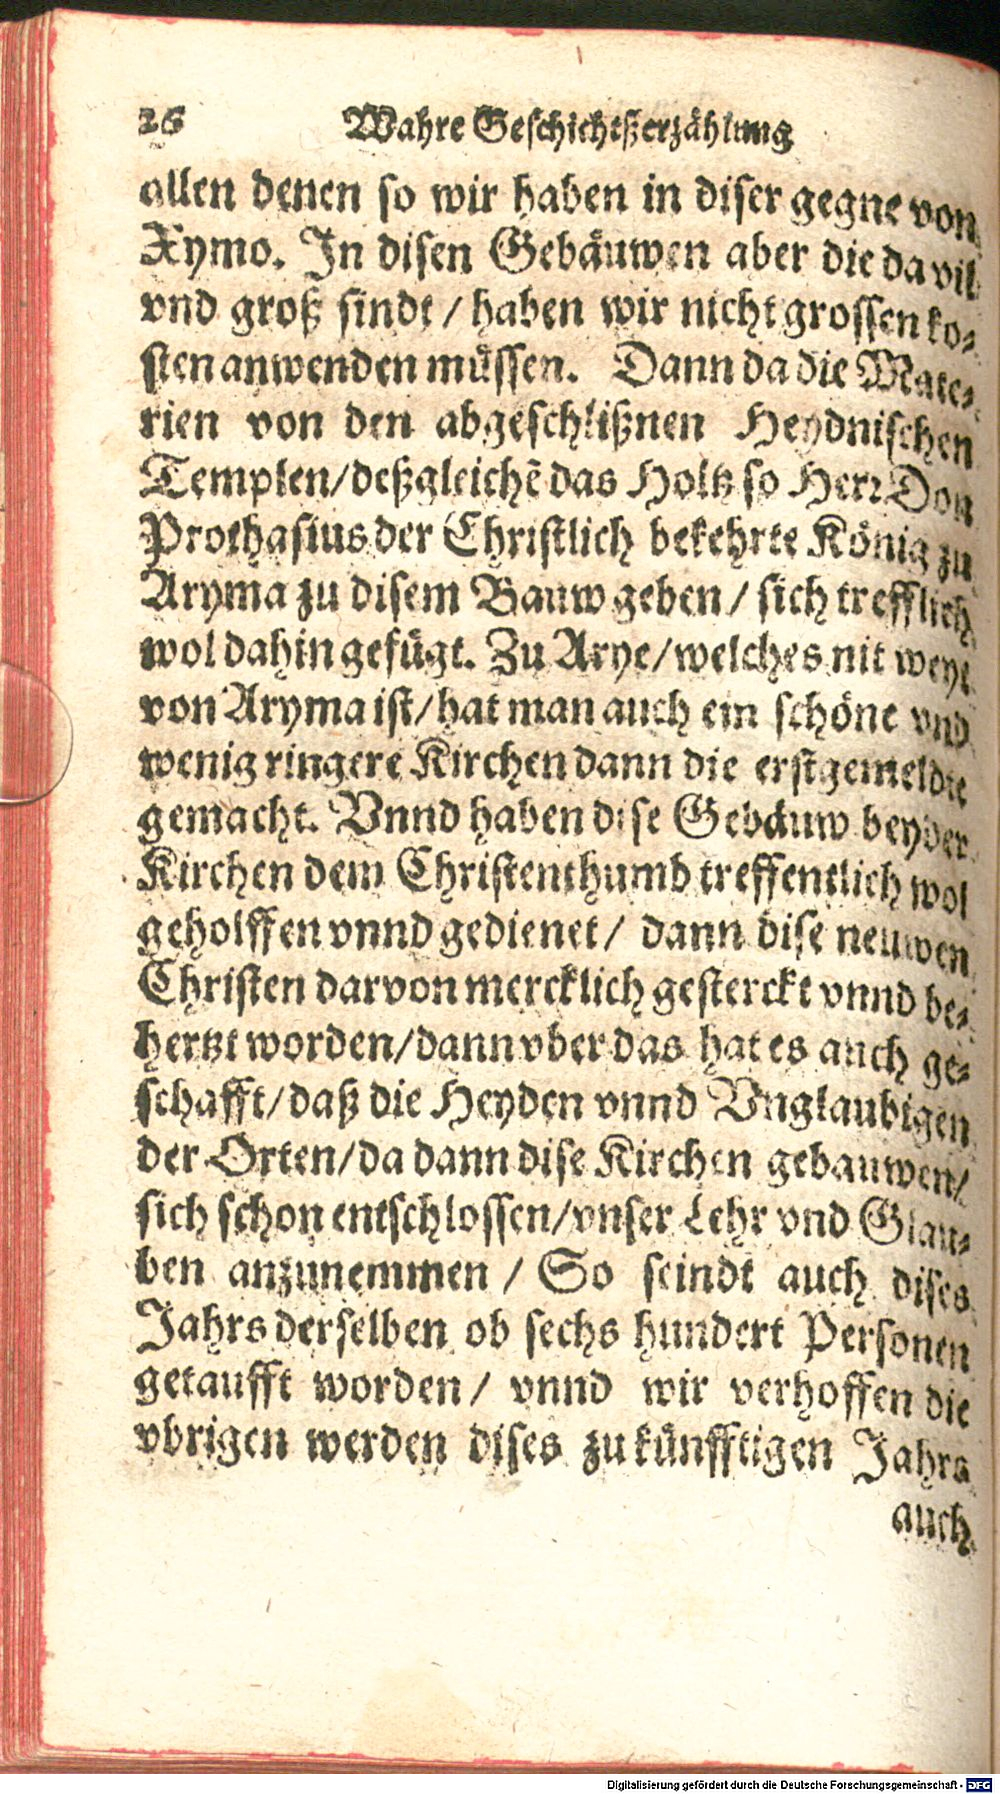 26 Wahre Geschichtßerzählung
allen denen so wir haben in diser gegne von
Xymo. In disen Gebäuwen aber die da vil
vnd groß sindt / haben wir nicht grossen ko-
sten anwenden müssen. Dann da die Mate-
rien von den abgeschlißnen Heydnischen
Templen/deßgleichẽ das Holtz so Herr Don
Prothasius der Christlich bekehrte König zu
Aryma zu disem Bauw geben/ sich trefflich
wol dahin gefügt. Zu Arye/welches nit weyt
von Aryma ist/hat man auch ein schöne vnd
wenig ringere Kirchen dann die erstgemeldte
gemacht. Vnnd haben dise Gebäuw beyder
Kirchen dem Christenthumb treffentlich wol
geholffen vnnd gedienet/ dann dise neuwen
Christen darvon mercklich gesterckt vnnd be-
hertzt worden/dann vber das hat es auch ge-
schafft/daß die Heyden vnnd Vnglaubigen
der Orten/da dann dise Kirchen gebauwen/
sich schon entschlossen/vnser Lehr vnd Glau-
ben anzunemmen / So seindt auch dises
Jahrs derselben ob sechs hundert Personen
getaufft worden/ vnnd wir verhoffen die
vbrigen werden dises zukünfftigen Jahrs
auch
Digitalisierung gefördert durch die Deutsche Forschungsgemeinschaft - DFG